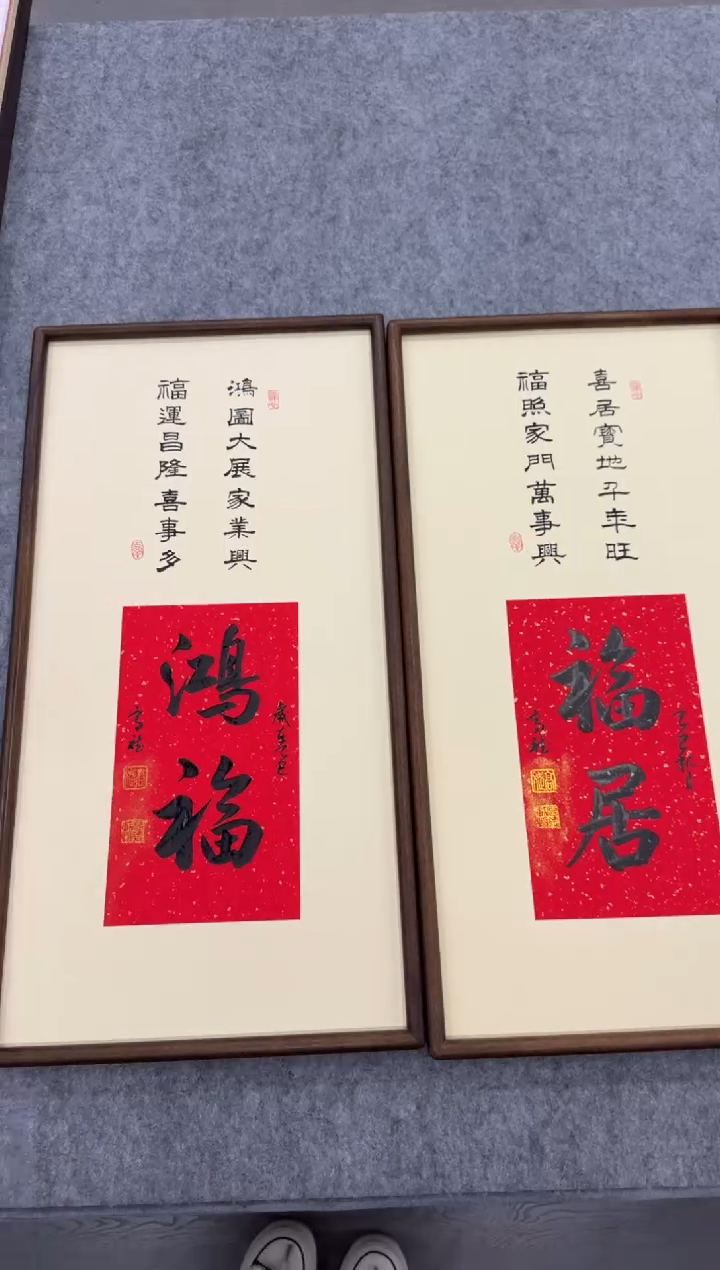 鴻圖大展家業興
福運昌隆喜事多
鴻福
喜居寳地千年旺
福照家門萬事興
福居